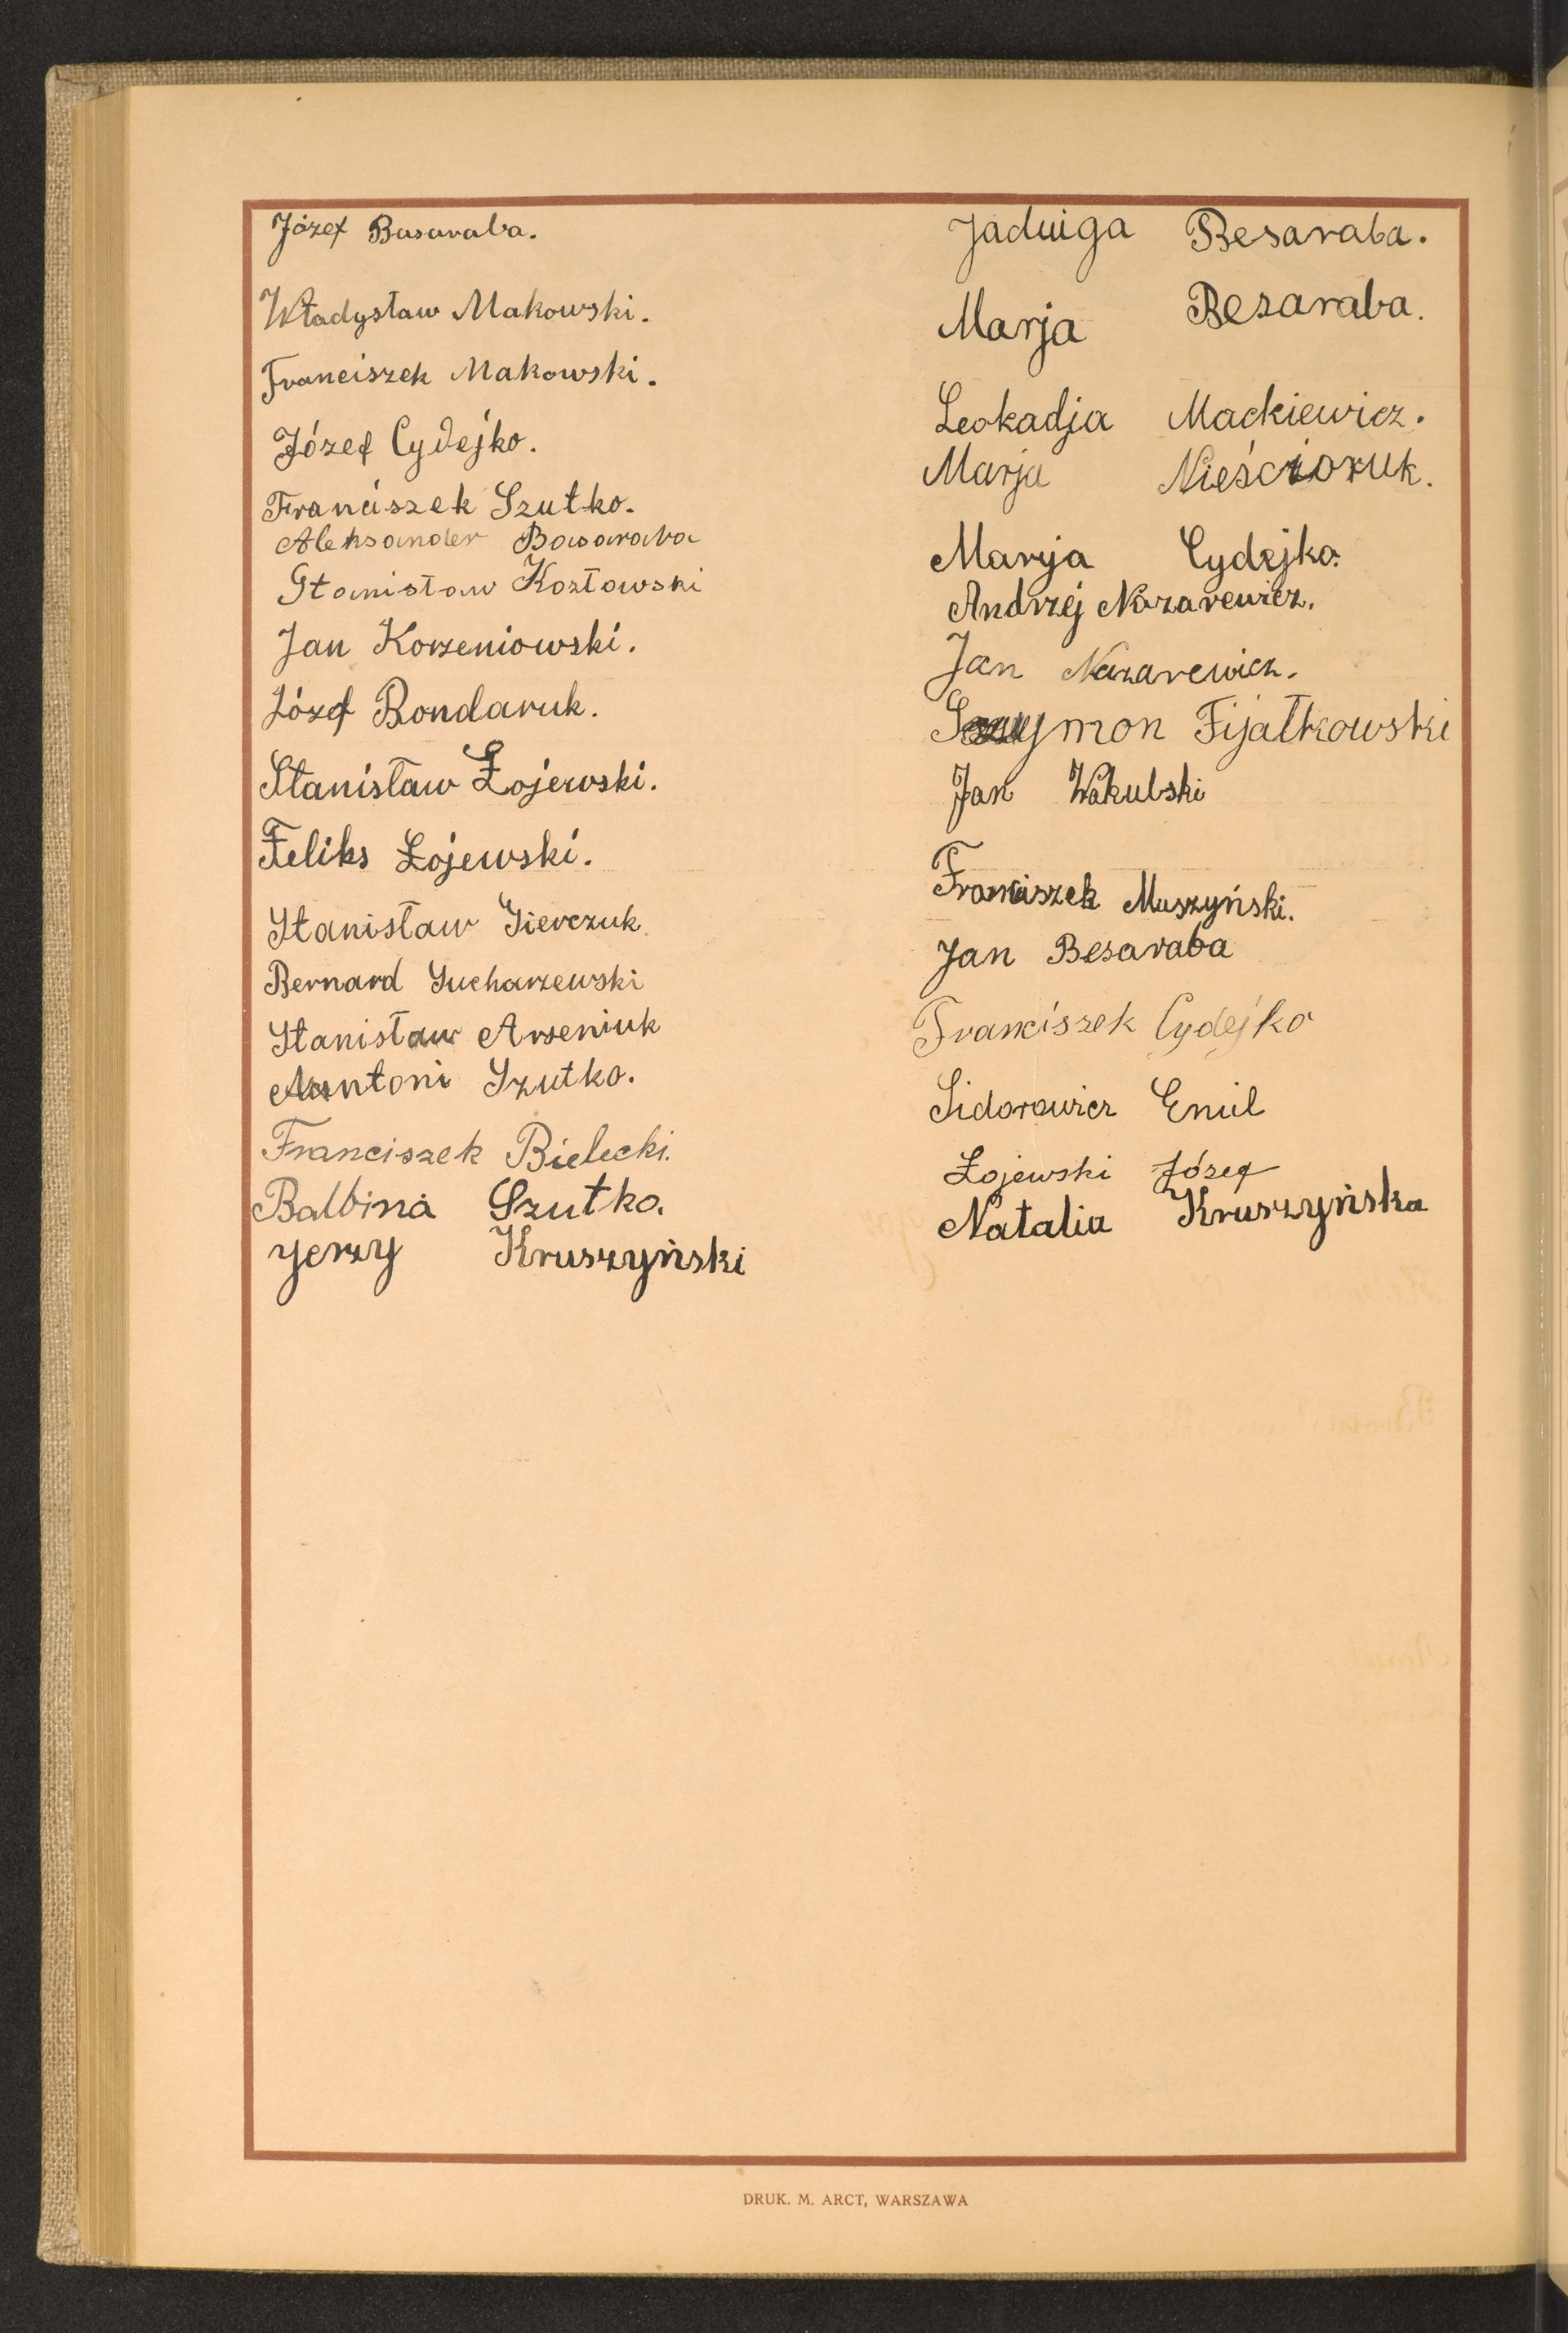 Józef Basaraba.
Władysław Makowski.
Franciszek Makowski.
Józef Cydejko.
Franciszek Szutko.
Aleksander Basaraba
Stanisław Kozłowski
Jan Korzeniowski.
Józef Bondaruk.
Stanisław Łojewski.
Feliks Łojewski.
Stanisław Sierczuk
Bernard Sucharzewski
Stanisław Arseniuk
Antoni Szutko.
Franciszek Bielecki.
Balbina Szutko.
Jerzy Kruszyński
Jadwiga Besaraba.
Marja Besaraba.
Leokadja Mackiewicz.
Marja Nieścioruk.
Marja Cydejko.
Andrzej Nazarewicz.
Jan Nazarewicz.
Szymon Fijałkowski
Jan Wakulski
Franciszek Muszyński.
Jan Besaraba
Franciszek Cydejko
Sidorowicz Emil
Łojewski Józef
Natalia Kruszyńska
DRUK. M. ARCT, WARSZAWA